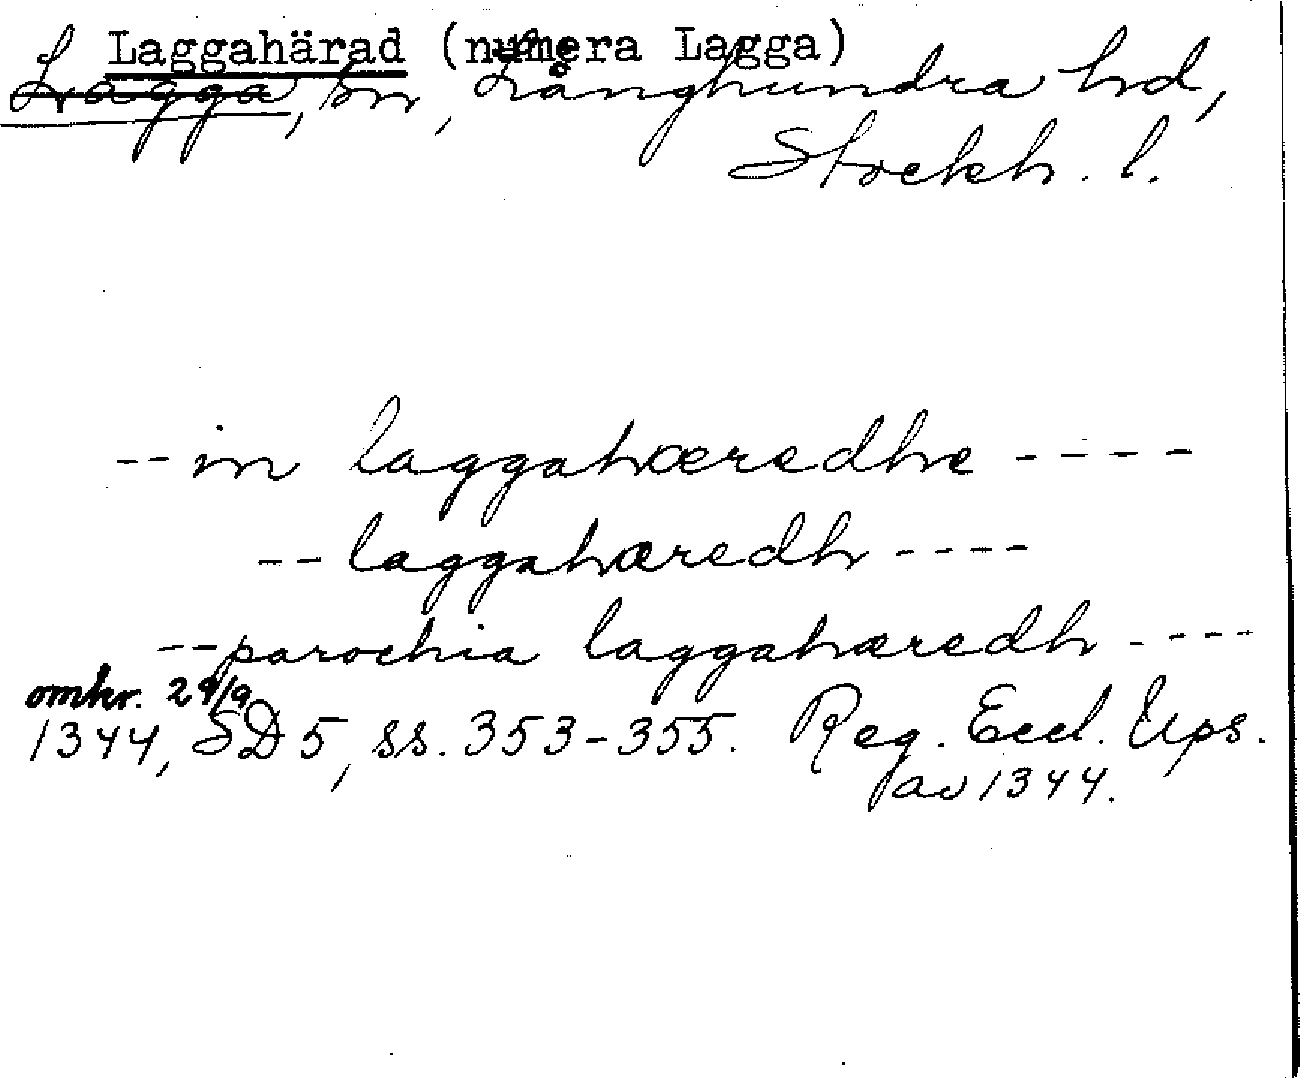 Laggahärad (numera Lagga)
Lagga, sn, Långhundra hd,
Stockh. l.
-- in laggahæredhe ----
-- laggahæredh ----
-- parochia laggahæredh ----
omkr. 29/9
1344, SD 5, ss. 353-355. Reg. Eccl. Ups.
av 1344.